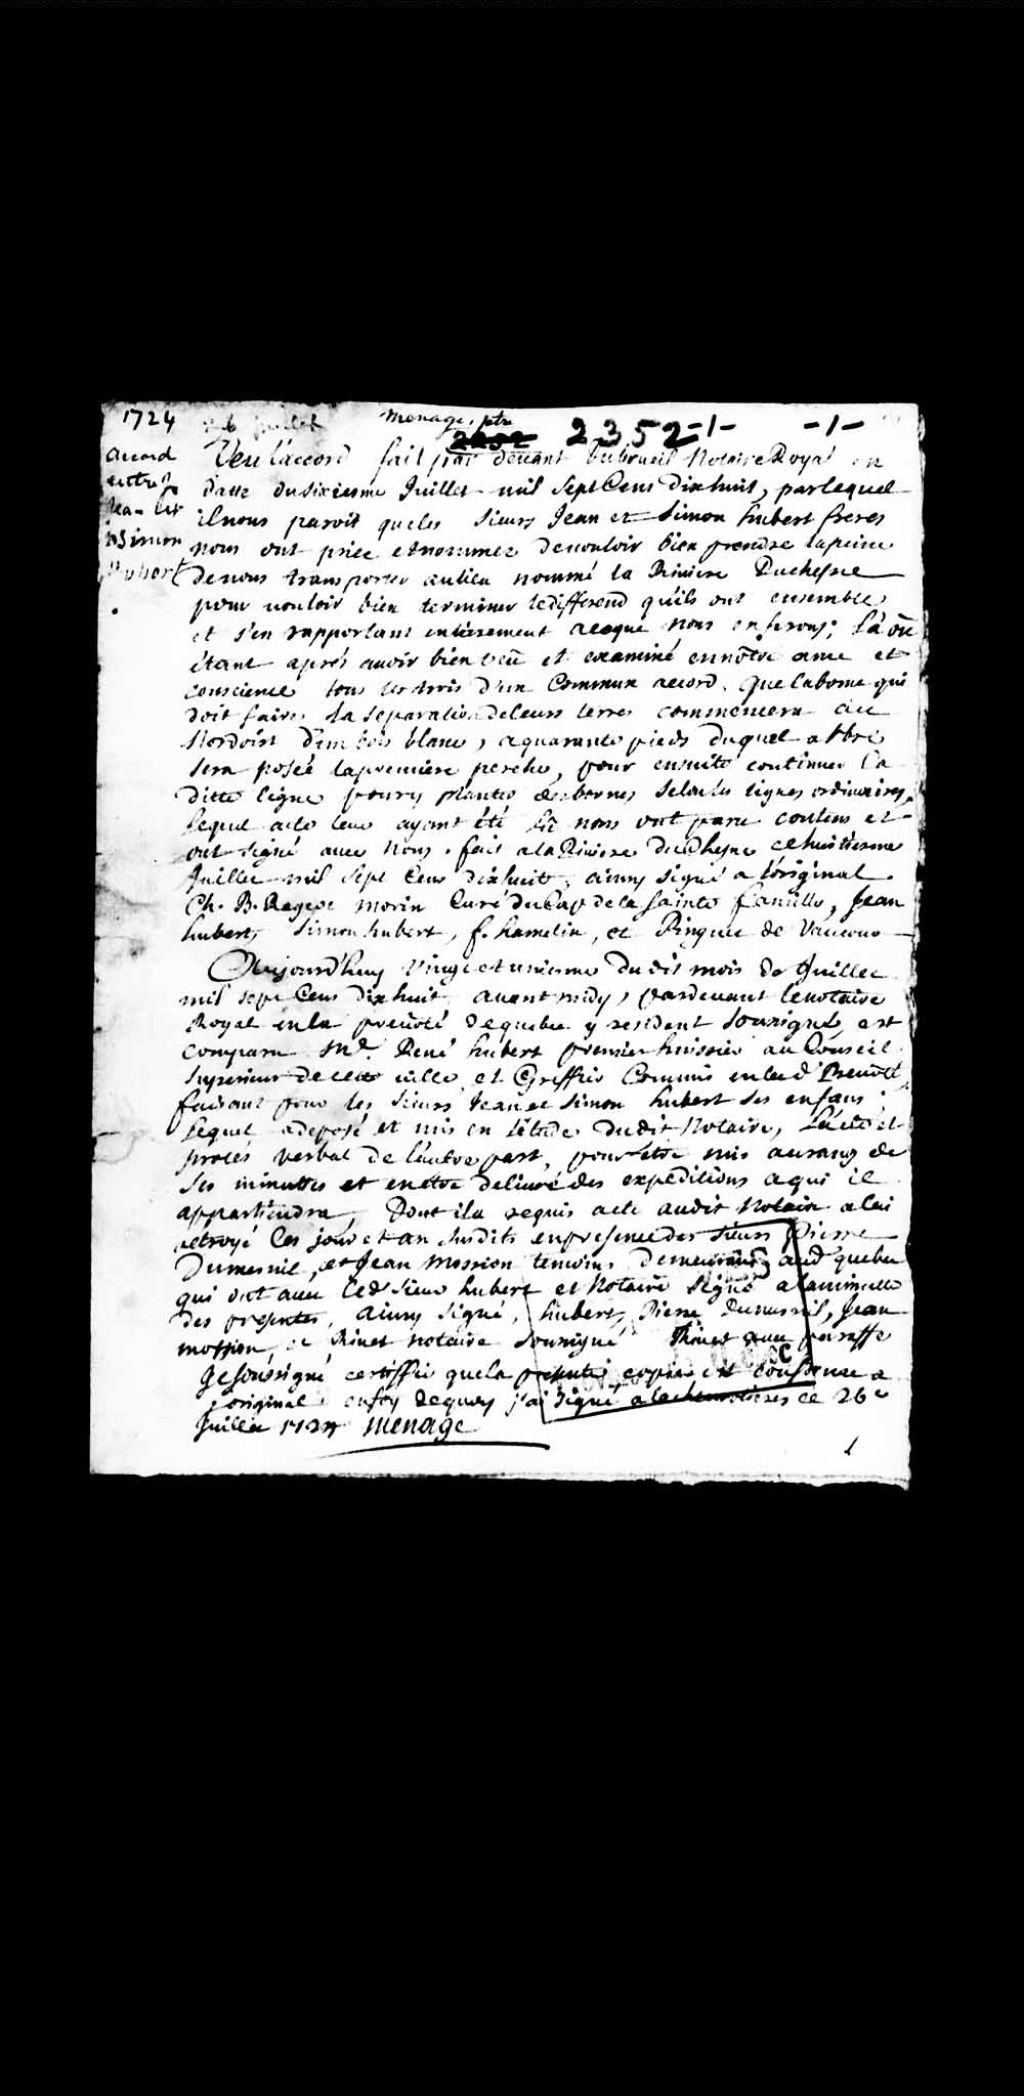 1724 26 juillet Menage, ptr
2352 2352 -1- -1-
accord
entre
Jean et
Simon
hubert
Veu l'accord fait par devant Dubreuil Notaire Royal en
datte du sixiesme Juillet mil Sept Cens Dixhuit, par lequel
il nous paroit que les Sieurs Jean et Simon hubert freres
nous ont priée et nommez de vouloir bien prendre la peine
de nous transporter au lieu nommé la Riviere Duchesne
pour vouloir bien terminer le different qu'ils ont ensemble,
et s'en rapportant entierement a ce que Nous en ferons; Là où
étant aprés avoir bien veü et examiné en nôtre ame et
conscience tous les trois d'un Commun accord. Que la borne qui
doit faire la separation de leurs terres commencera au
Nordoist d'un bois blanc, a quarante pieds duquel arbre
sera posée la premiere perche, pour ensuite continuer la
ditte ligne pour y planter des bornes selon les lignes ordinaires,
lequel acte leur ayant été lû nous ont paru contens et
ont signé avec Nous. fait a la Riviere Duchesne ce huitiesme
Juillet mil Sept Cens dixhuit, ainsy signé a l'original
Ch. B. morin Curé du Cap de la Sainte famille, Jean
hubert, Simon hubert, f. hamelin, et Pinguet de Vaucour
Aujourd'huy Vingt et uniesme dudit mois de Juillet
mil sept Cens dixhuit avant midy, pardevant le notaire
Royal en la prevôté de quebec y resident Sousigné, est
comparu Me. René hubert premier huissier au Conseil
Superieur de cette ville, et Greffier Commis en lad. Prevôté
faisant pour les Sieurs Jean et Simon hubert ses enfans;
lequel a deposé et mis en l'étude dudit Notaire, l'acte et
procés verbal de l'autre part, pour être mis au rang de
ses minuttes et en être delivré des expeditions a qui il
appartiendra, Dont il a requis acte audit Notaire a lui
octroyé les jour et an susdits en presence des Sieurs Pierre
Dumesnil, et Jean Mossion temoins demeurans aud. quebec
qui ont avec led. Sieur hubert et Notaire Signé a la minutte
des presentes, ainsy signé, hubert, Pierre Dumesnil, Jean
mossion, et Rivet notaire Sousigné Rivet avec paraffe
Je soussigné certiffie que la presente coppie est conforme a
l'original en foy de quoy j'ai signé a ce 26e
Juillet 1724 Menage
1